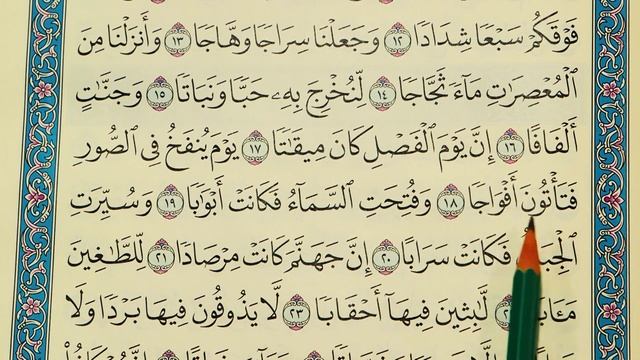 فَوْقَكُمْ سَبْعًا شِدَادًا ١٢ وَجَعَلْنَا سِرَاجًا وَهَّاجًا ١٣ وَأَنزَلْنَا مِنَ
الْمُعْصِرَٰتِ مَآءً ثَجَّاجًا ١٤ لِّنُخْرِجَ بِهِۦ حَبًّا وَنَبَاتًا ١٥ وَجَنَّٰتٍ
أَلْفَافًا ١٦ إِنَّ يَوْمَ الْفَصْلِ كَانَ مِيقَٰتًا ١٧ يَوْمَ يُنفَخُ فِى الصُّورِ
فَتَأْتُونَ أَفْوَاجًا ١٨ وَفُتِحَتِ السَّمَآءُ فَكَانَتْ أَبْوَٰبًا ١٩ وَسُيِّرَتِ
فَكَانَتْ سَرَابًا ٢٠ إِنَّ جَهَنَّمَ كَانَتْ مِرْصَادًا ٢١ لِّلطَّٰغِينَ
لَّٰبِثِينَ فِيهَآ أَحْقَابًا ٢٣ لَّا يَذُوقُونَ فِيهَا بَرْدًا وَلَا